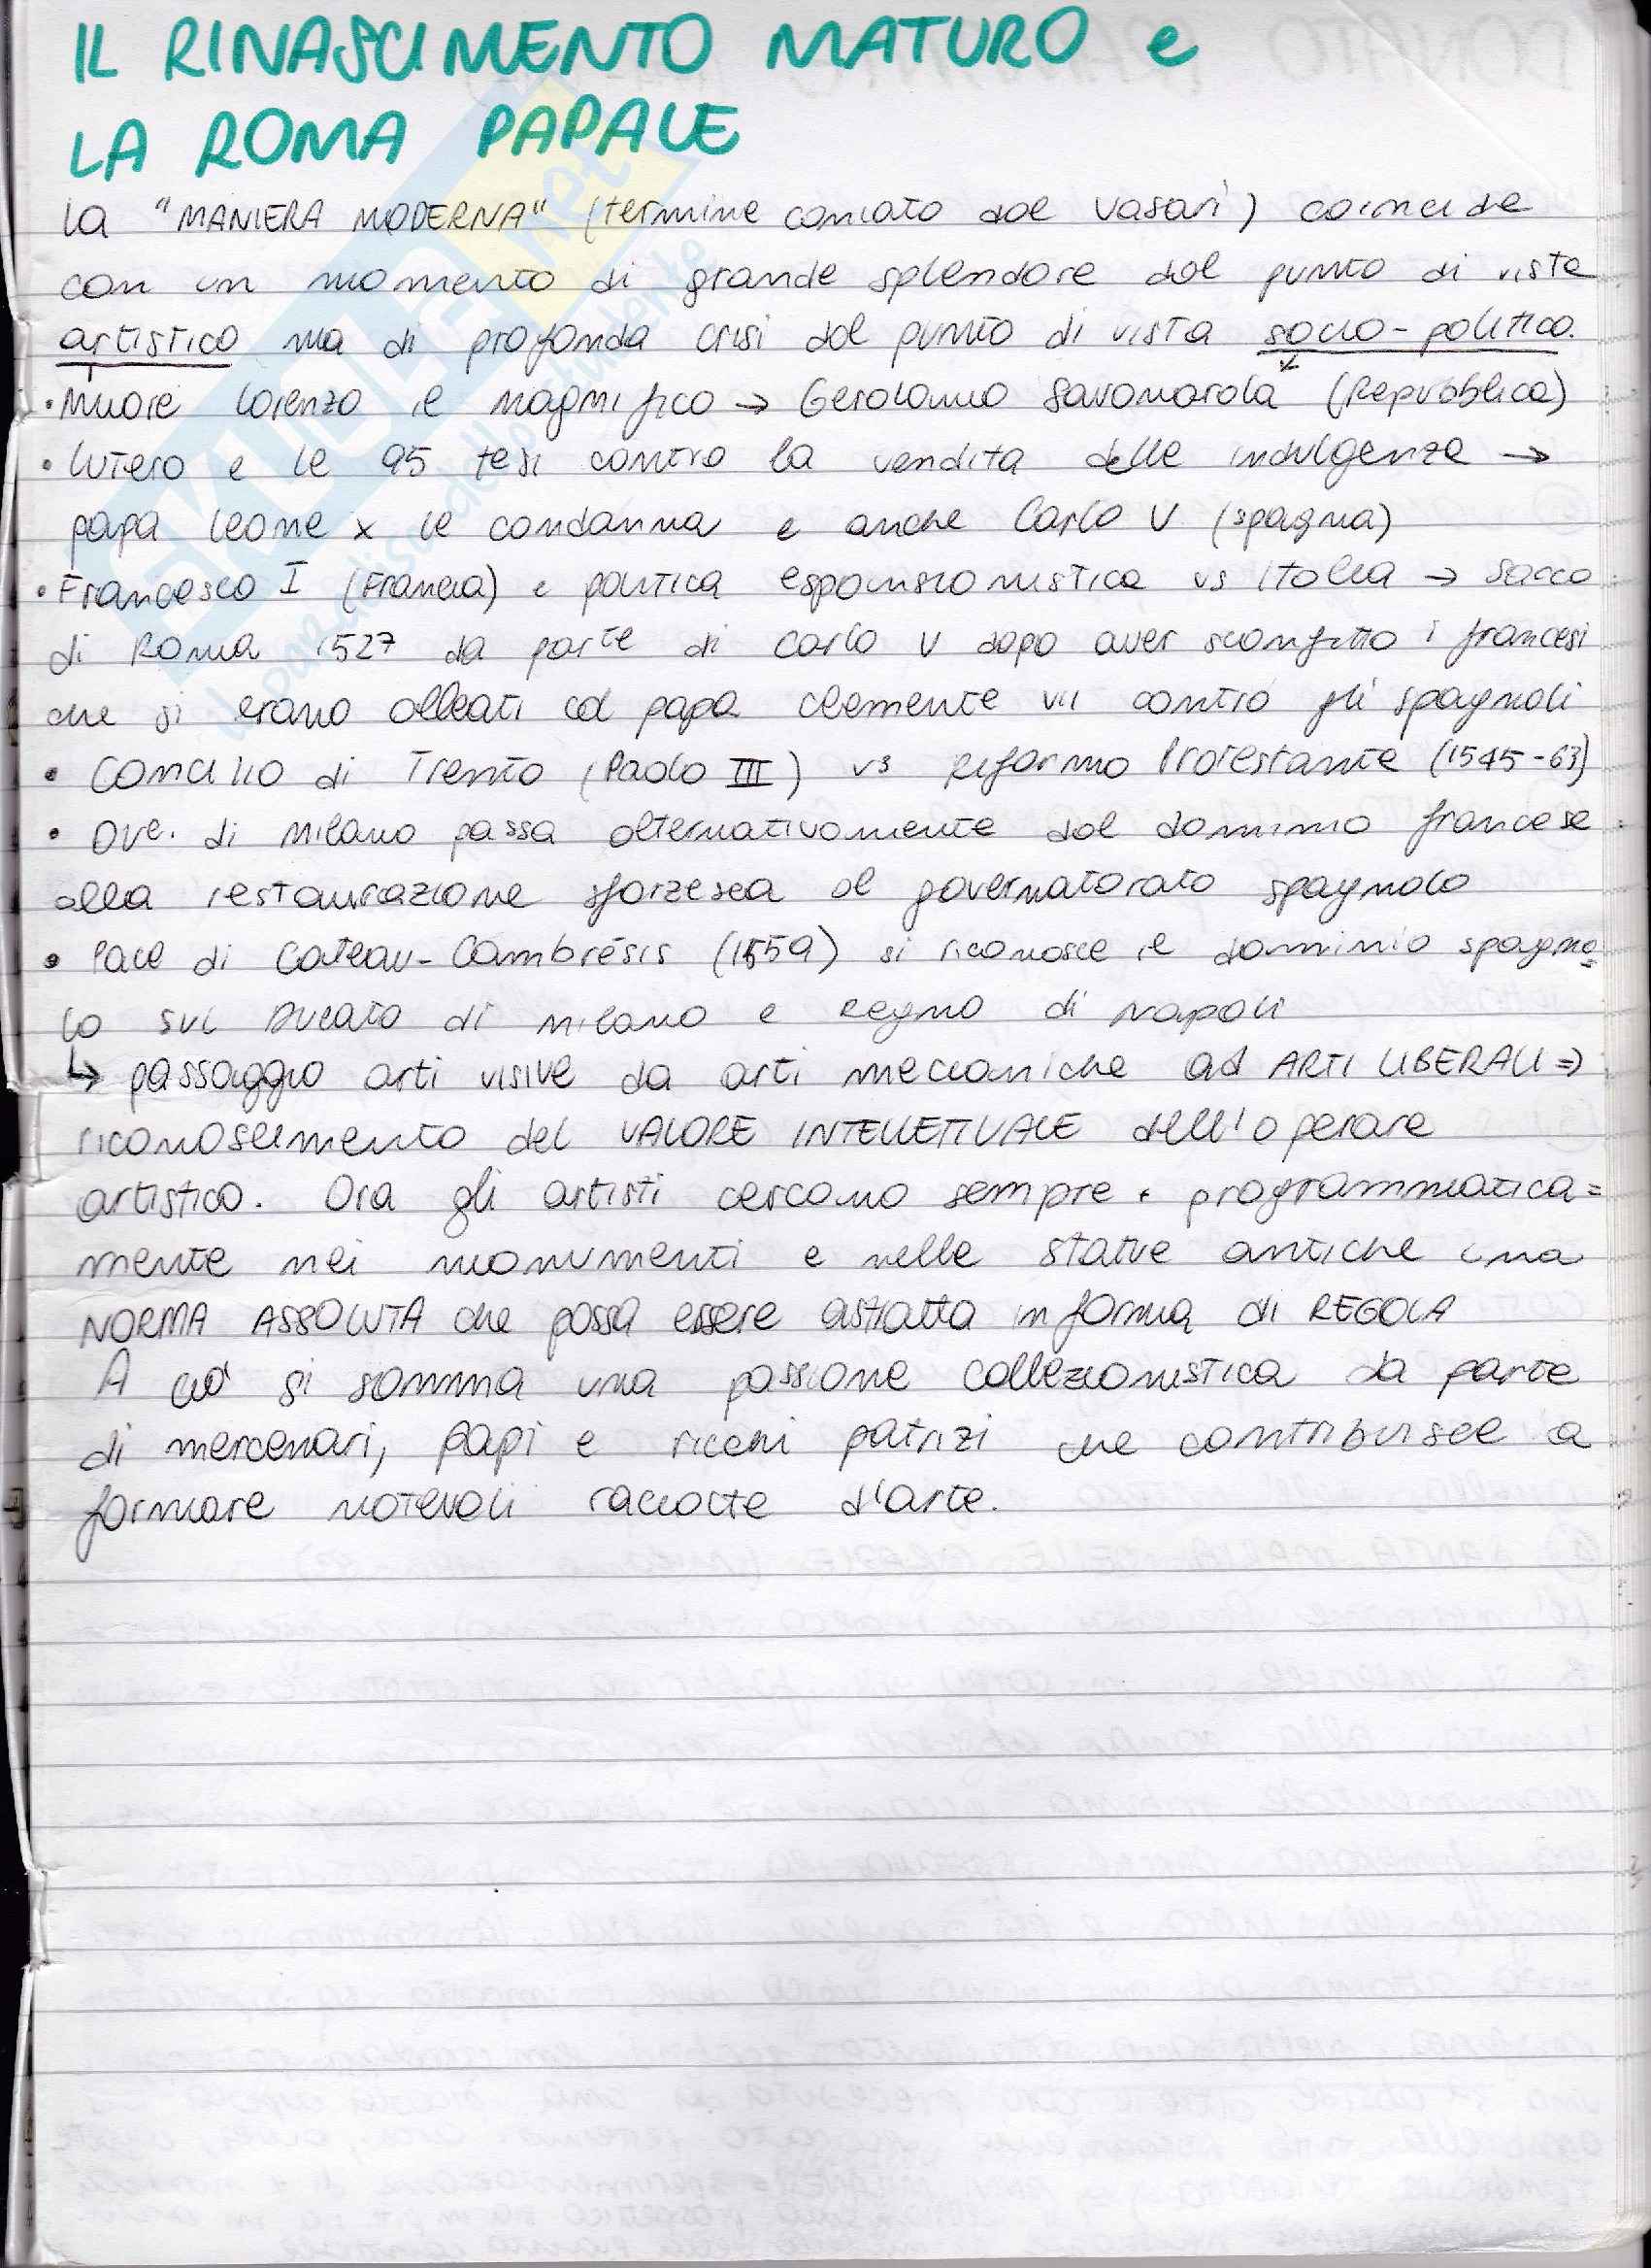 IL RINASCIMENTO MATURO e
LA ROMA PAPALE
La "MANIERA MODERNA" (termine coniato dal Vasari) coincide
con un momento di grande splendore dal punto di vista
artistico ma di profonda crisi dal punto di vista socio-politico.
• Muore Lorenzo il Magnifico → Gerolamo Savonarola (Repubblica)
• Lutero e le 95 tesi contro la vendita delle indulgenze →
papa Leone X le condanna e anche Carlo V (Spagna)
• Francesco I (Francia) e politica espansionistica vs Italia → Sacco
di Roma 1527 da parte di Carlo V dopo aver sconfitto i francesi
che si erano alleati col papa Clemente VII contro gli spagnoli
• Concilio di Trento (Paolo III) vs Riforma Protestante (1545-63)
• Duc. di Milano passa alternativamente dal dominio francese
alla restaurazione sforzesca al governatorato spagnolo
• Pace di Cateau-Cambrésis (1559) si riconosce il dominio spagno=
lo sul Ducato di Milano e Regno di Napoli
↳ passaggio arti visive da arti meccaniche ad ARTI LIBERALI ⇒
riconoscimento del VALORE INTELLETTUALE dell'operare
artistico. Ora gli artisti cercano sempre + programmatica=
mente nei monumenti e nelle statue antiche una
NORMA ASSOLUTA che possa essere astratta in forma di REGOLA
A ciò si somma una passione collezionistica da parte
di mercenari, papi e ricchi patrizi che contribuisce a
formare notevoli raccolte d'arte.